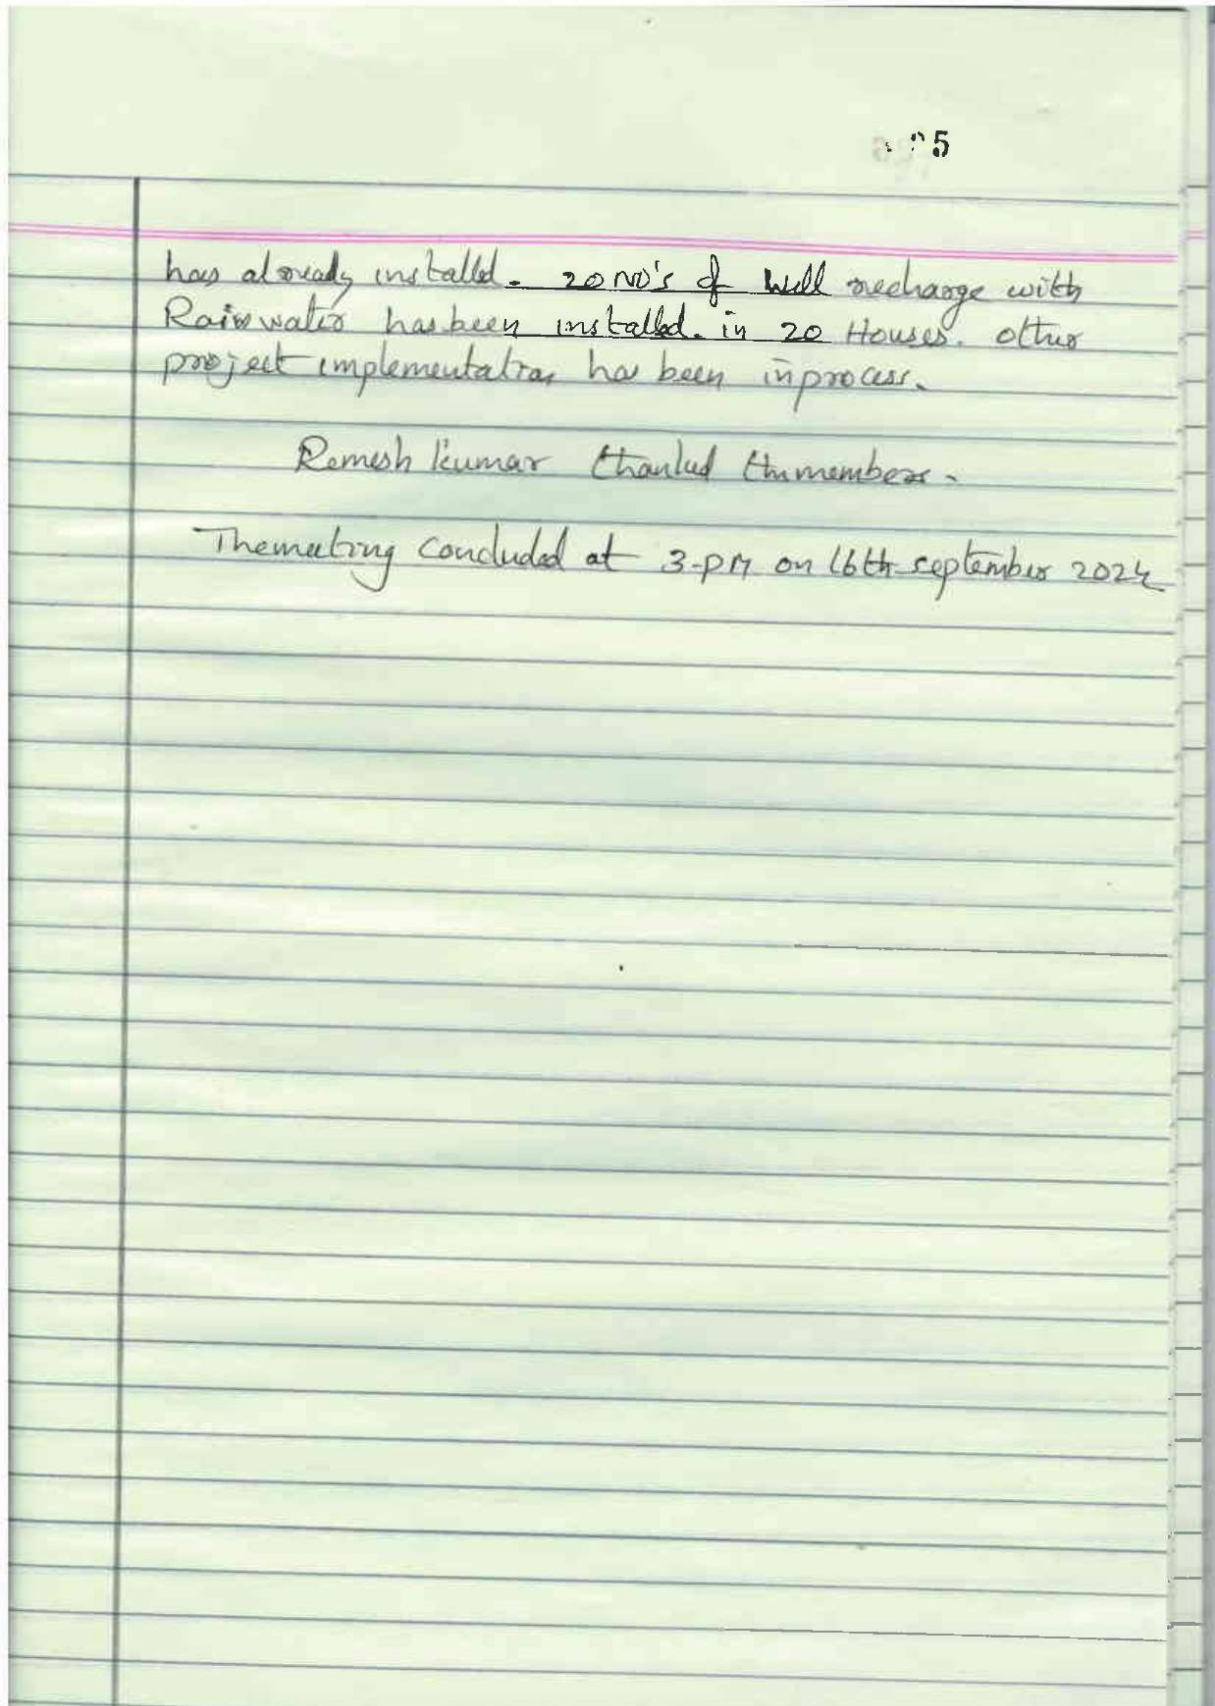 5
has already installed. 20 NO's of Well recharge with
Rain water has been installed. in 20 Houses. other
project implementation has been inprocess.
Remesh kumar thanked the members.
The meeting concluded at 3-PM on 16th september 2024